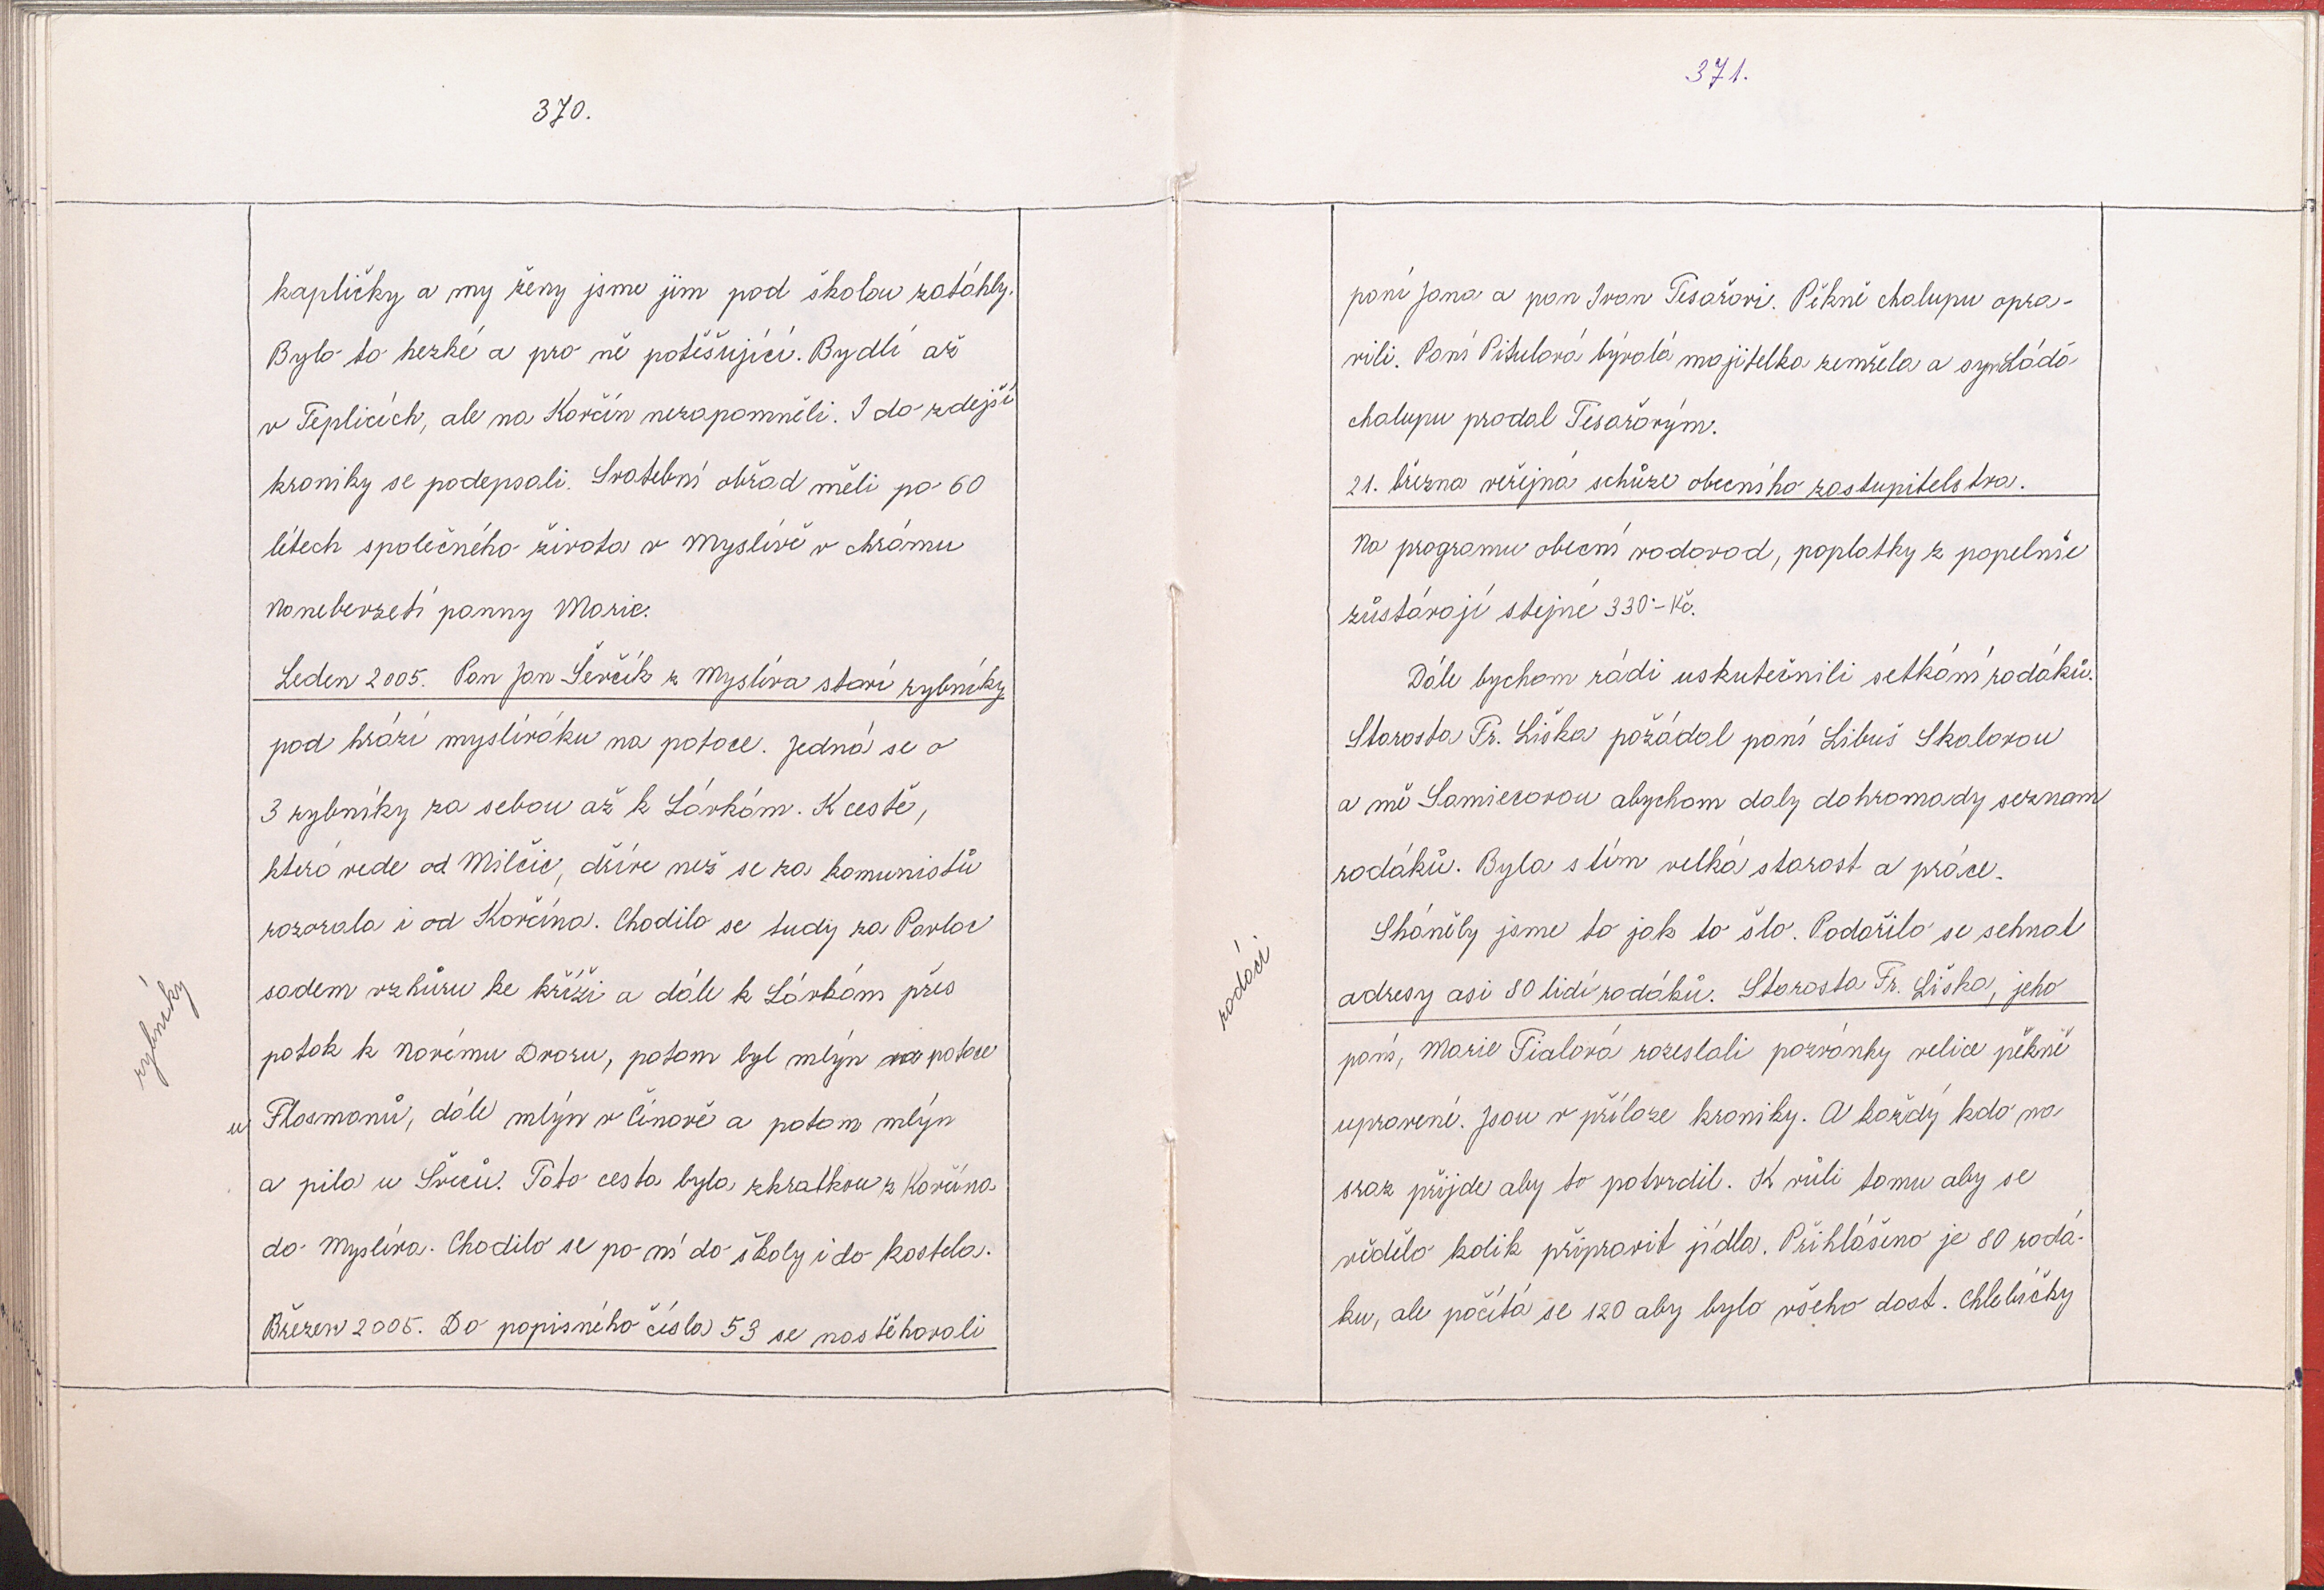 370.
kapličky a my ženy jsme jim pod školou zatáhly.
Bylo to hezké a pro ně potěšující. Bydlí až
v Teplicích, ale na Korčín nezapomněli. I do zdejší
kroniky se podepsali. Svatební obřad měli po 60
létech společného života v Myslívě v chrámu
Nanebevzetí panny Marie.
Leden 2005. Pan Jan Ševčík z Myslíva staví rybníky
pod hrází myslíváku na potoce. Jedná se o
3 rybníky za sebou až k Lávkám. K cestě,
která vede od Milčic, dříve než se za komunistů
rozorala i od Korčína. Chodilo se tudy za Pavlov
sadem vzhůru ke kříži a dále k Lávkám přes
potok k Novému Dvoru, potom byl mlýn na potoce
rybníky
u Flosmanů, dále mlýn v Cínově a potom mlýn
a pila u Šviců. Tato cesta byla zkratkou z Korčína
do Myslíva. Chodilo se po ní do školy i do kostela.
Březen 2005. Do popisného čísla 53 se nastěhovali
371.
paní Jana a pan Ivan Tesařovi. Pěkně chalupu opra-
vili. Paní Pitulová bývalá majitelka zemřela a syn Láďa
chalupu prodal Tesařovým.
21. března veřejná schůze obecního zastupitelstva.
Na programu obecní vodovod, poplatky z popelnic
zůstávají stejné 330.- Kč.
Dále bychom rádi uskutečnili setkání rodáků.
Starosta Fr. Liška požádal paní Libuš Skalovou
a mě Samiecovou abychom daly dohromady seznam
rodáků. Byla s tím velká starost a práce.
Sháněly jsme to jak to šlo. Podařilo se sehnat
rodáci
adresy asi 80 lidí rodáků. Starosta Fr. Liška, jeho
paní, Marie Fialová rozeslali pozvánky velice pěkně
upravené. Jsou v příloze kroniky. A každý kdo na
sraz přijde aby to potvrdil. K vůli tomu aby se
vědělo kolik připravit jídla. Přihlášeno je 80 rodá-
ku, ale počítá se 120 aby bylo všeho dost. Chlebíčky